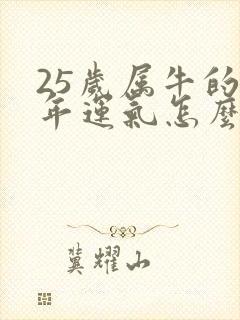 25歲属牛的
年運氣怎麼
冀耀山